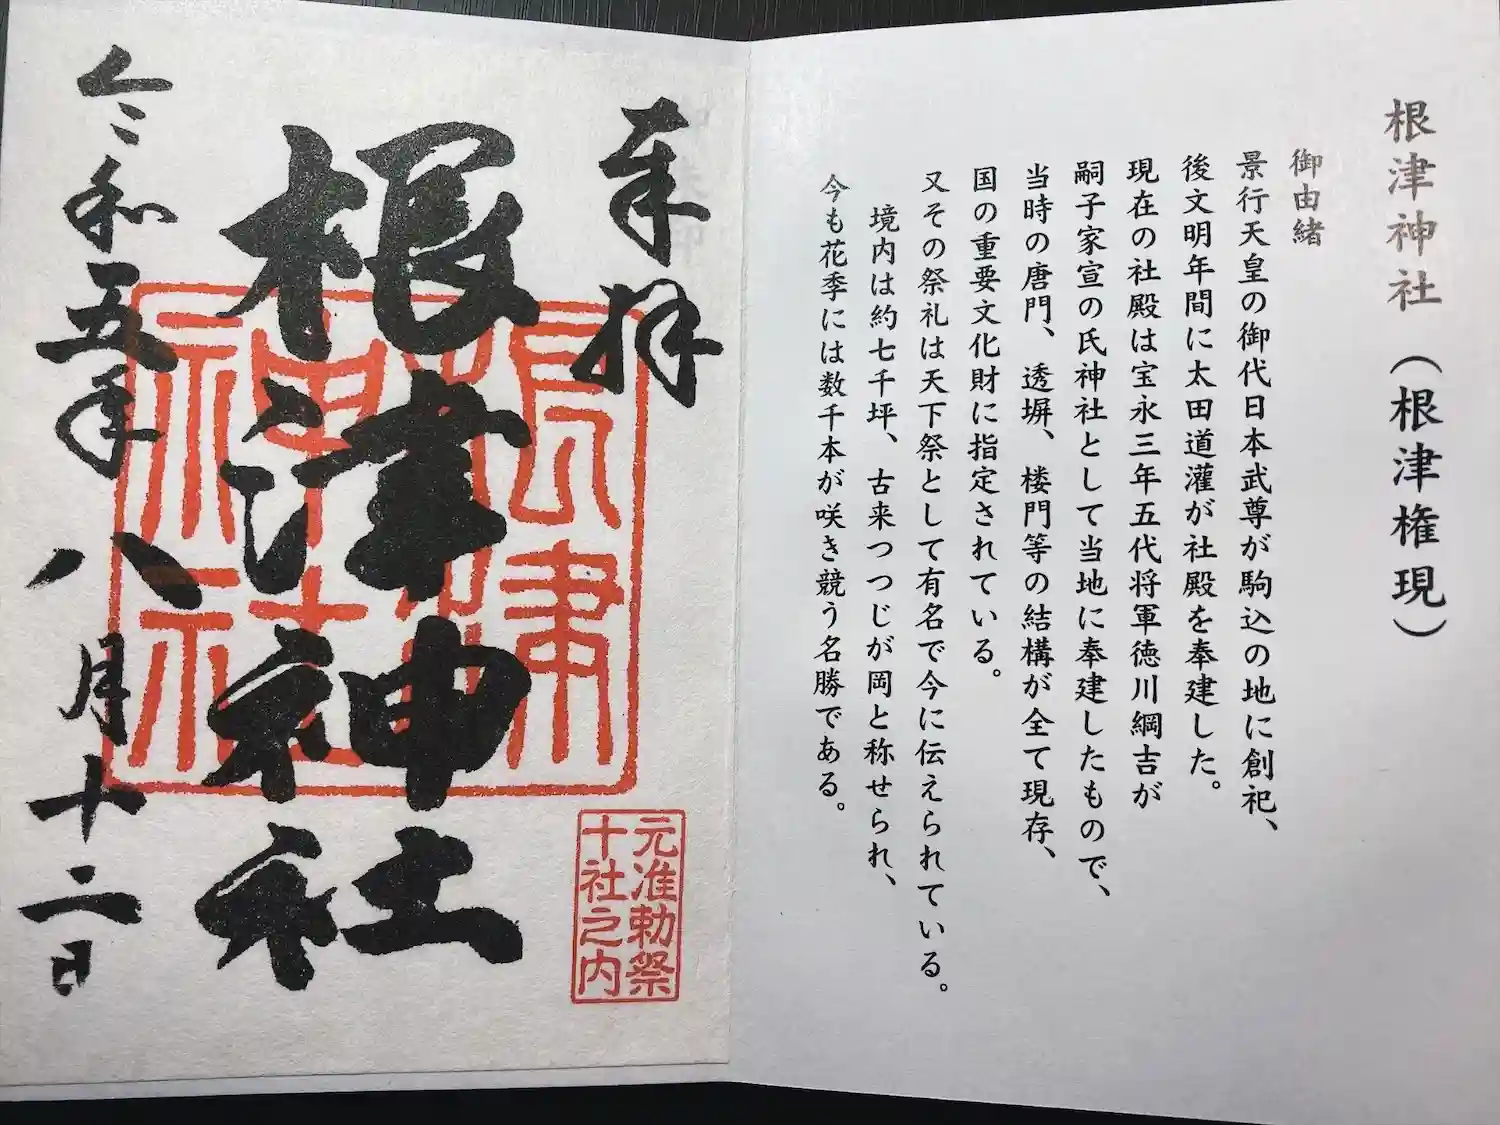 根津神社（根津権現）
御由緒
景行天皇の御代日本武尊が駒込の地に創祀、
後文明年間に太田道灌が社殿を奉建した。
現在の社殿は宝永三年五代将軍徳川綱吉が
嗣子家宣の氏神社として当地に奉建したもので、
当時の唐門、透塀、楼門等の結構が全て現存、
国の重要文化財に指定されている。
又その祭礼は天下祭として有名で今に伝えられている。
境内は約七千坪、古来つつじが岡と称せられ、
今も花季には数千本が咲き競う名勝である。
奉拝
元准勅祭
十社之内
根津神社
根津
神社
令和五年八月十二日